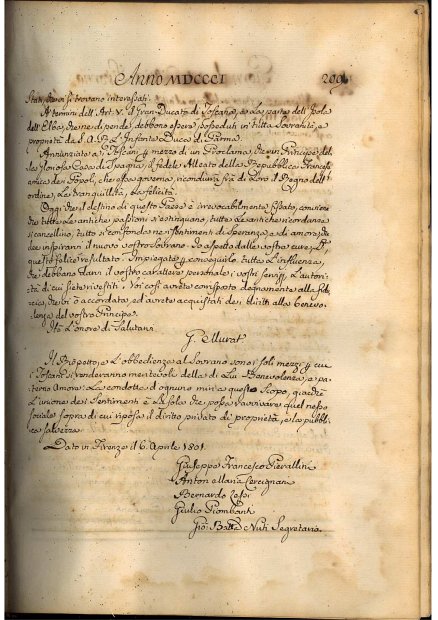 Anno MDCCCI 299
Stati, che vi si trovano interessati.
A termini dell'Art. V. il Gran-Ducato di Toscana, e la parte dell'Isola
dell'Elba, che ne dipende, debbono essere posseduti in tutta Sovranità, e
proprietà da S.A.R. l'Infante Duca di Parma.
Annunziate a' Toscani, p. mezzo di un Proclama, che un Principe del-
la Gloriosa Casa di Spagna, il fedele Alleato della Repubblica Francese
amica dei Popoli, che essa governa, ricondurrà frà di Loro il Regno dell'
ordine, la tranquillità, la felicità.
Oggi, che il destino di questo Paese è irrevocabilmente fissato, conviene
che tutte le antiche passioni s'estinguano, tutte le antiche ricordanze
si cancellino, tutto si confonda nei sentimenti di speranza, e di amore, che
deve inspirarvi il nuovo vostro Sovrano. Io aspetto dalle vostre cure, Cit.,
questo felice resultato. Impiegate p. conseguirlo, tutta l'influenza,
che debbano darvi il vostro carattere personale, i vostri servigj, l'autori-
tà di cui siete rivestiti. Voi così avrete corrisposto degnamente alla fidu-
cia, che vi è accordata, ed avrete acquistati dei diritti alla benevo-
lenza del vostro Principe.
Hò l'onore di Salutarvi
G. Murat
Il Rispetto, e l'obbedienza al Sovrano sono i soli mezzi p. cui
i Toscani si renderanno meritevoli della di Lui Benevolenza, e pa-
terno Amore. La condotta d'ognuno miri a questo scopo, giacchè
l'unione dei sentimenti è la sola che possa ravvivare quel nesso
sociale sopra di cui riposa il diritto privato di proprietà, e la pubbli-
ca salvezza.
Dato in Firenze il 6. Aprile 1801.
Giuseppe Francesco Pierallini
Anton Maria Cercignani
Bernardo Lessi
Giulio Piombanti
Gio: Batta Nuti Segretario